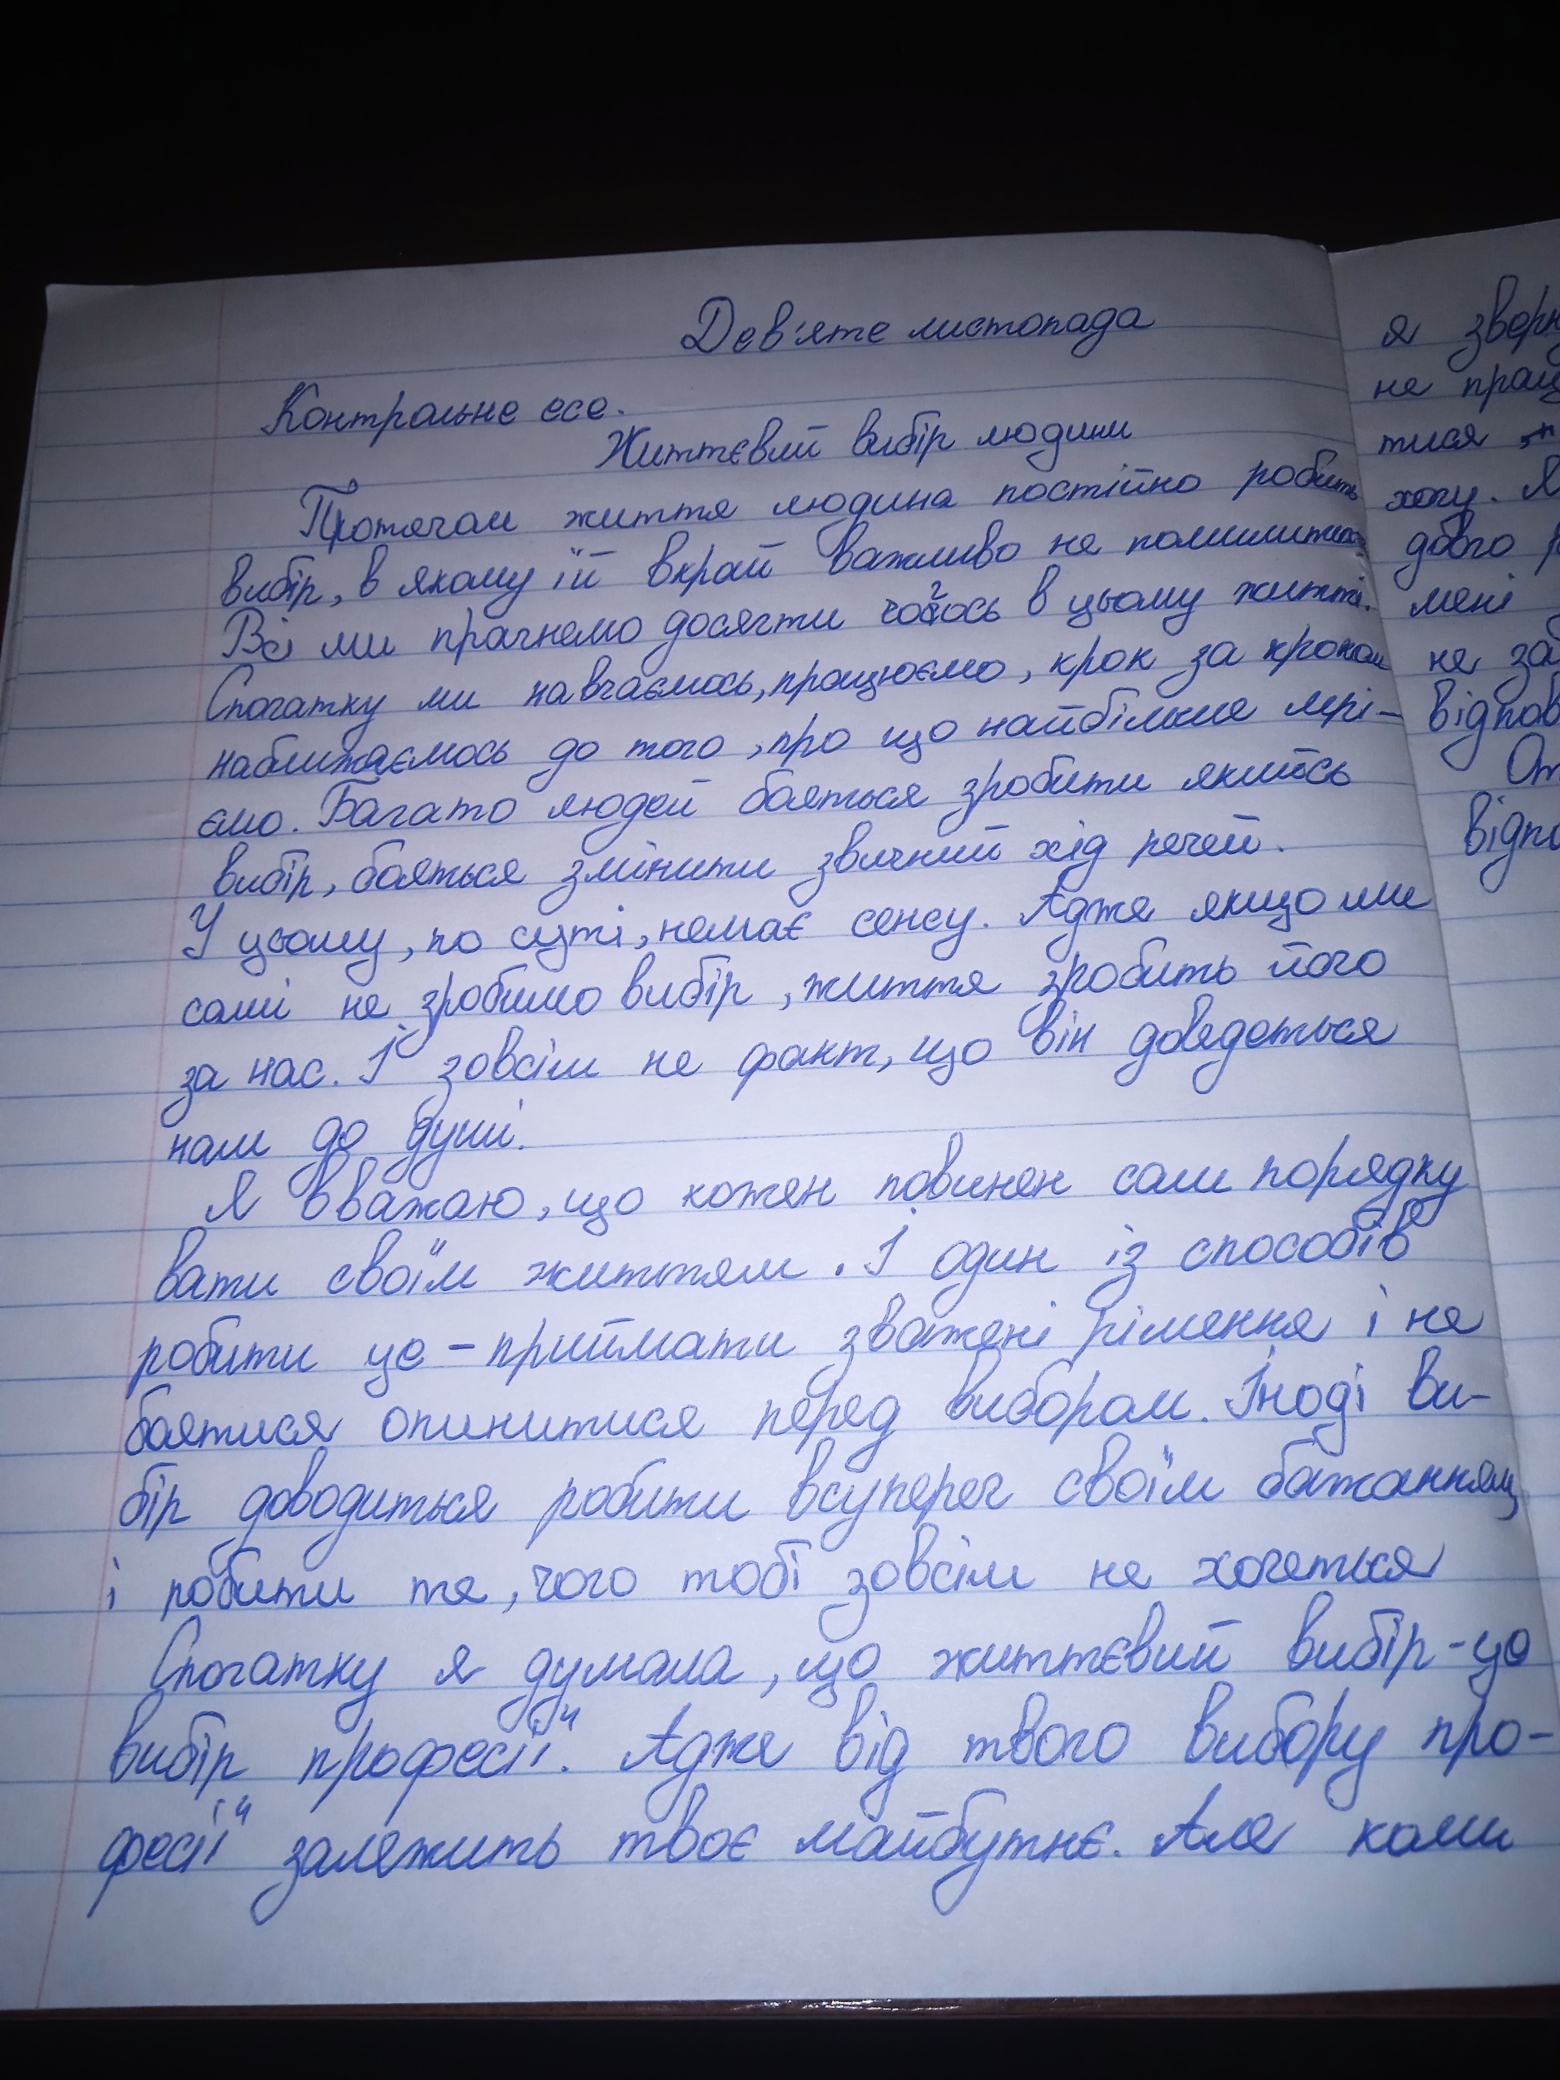 Дев'яте листопада
Контрольне есе.
Життєвий вибір людини
Протягом життя людина постійно робить
вибір, в якому їй вкрай важливо не помилитись
Всі ми прагнемо досягти чогось в цьому житті.
Спочатку ми навчаємось, працюємо, крок за кроком
наближаємось до того, про що найбільше мрі-
ємо. Багато людей бояться зробити якийсь
вибір, бояться змінити звичний хід речей.
У цьому, по суті, немає сенсу. Адже якщо ми
самі не зробимо вибір, життя зробить його
за нас. І зовсім не факт, що він доведеться
нам до душі.
Я вважаю, що кожен повинен сам порядку
вати своїм життям. І один із способів
робити це - приймати зважені рішення і не
боятися опинитися перед вибором. Іноді ви-
бір доводиться робити всупереч своїм бажанням,
і робити те, чого тобі зовсім не хочеться
Спочатку я думала, що життєвий вибір - це
вибір професії. Адже від твого вибору про-
фесії залежить твоє майбутнє. Але коли
я
не
тися
хочу. Я
довго
мені
не